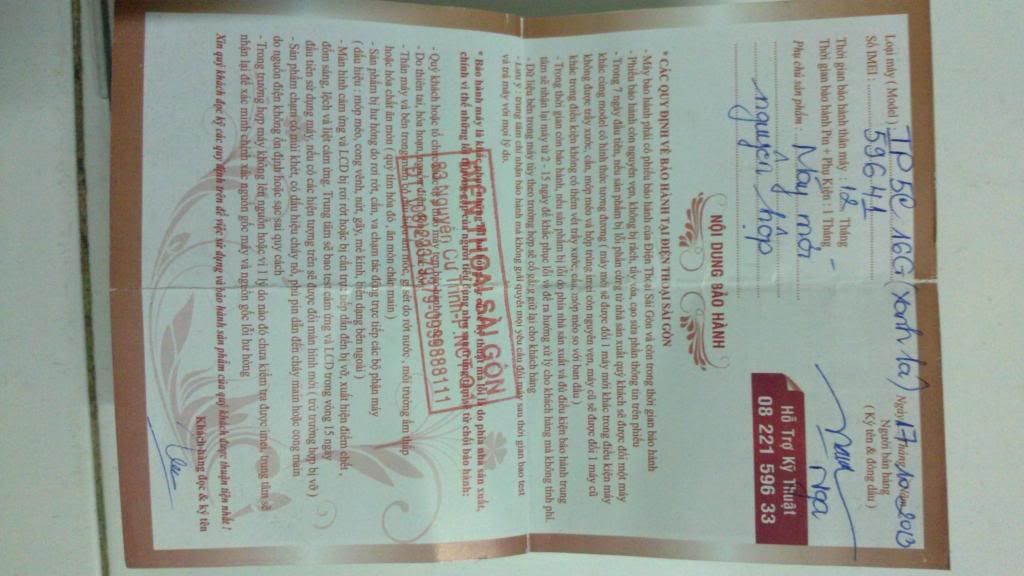 Loại máy ( Model ) IP 5C 16G (xanh lá) Ngày 17 Tháng 10 Năm 2013
Số IMEI : 59641
Người bán hàng
Thời gian bảo hành thân máy : 12 Tháng
( Ký tên & đóng dấu )
Thời gian bảo hành Pin + Phụ Kiện : 1 Tháng
Phụ chú sản phẩm : Máy mới
nguyên hộp
Nga
Hỗ Trợ Kỹ Thuật
08 221 596 33
NỘI DUNG BẢO HÀNH
* CÁC QUY ĐỊNH VỀ BẢO HÀNH TẠI ĐIỆN THOẠI SÀI GÒN
- Máy bảo hành phải có phiếu bảo hành của Điện Thoại Sài Gòn và còn trong thời gian bảo hành
- Phiếu bảo hành còn nguyên vẹn, không bị rách, tẩy xóa, cạo sửa phần thông tin trên phiếu
- Trong 7 ngày đầu tiên, nếu sản phẩm bị lỗi phần cứng từ nhà sản xuất quý khách sẽ được đổi một máy
khác cùng model có hình thức tương đương ( máy mới sẽ được đổi 1 máy mới khác trong điều kiện máy
không được trầy xước, cấn, móp méo và hộp trùng imei còn nguyên vẹn, máy cũ sẽ được đổi 1 máy cũ
khác trong điều kiện không có thêm vết trầy xước, cấu, móp méo so với ban đầu )
- Trong thời gian còn bảo hành, nếu sản phẩm bị lỗi do phía nhà sản xuất và đủ điều kiện bảo hành trung
tâm sẽ nhận lại máy từ 2 - 15 ngày để khắc phục lỗi và đề ra hướng xử lý cho khách hàng mà không tính phí.
- Dữ liệu bên trong máy tùy theo trường hợp sẽ cố gắng giữ lại cho khách hàng
- Lưu ý : trung tâm chỉ nhận bảo hành mà không giải quyết mọi yêu cầu đổi máy sau thời gian bao test
và trả máy với mọi lý do.
* Bảo hành máy là khắc phục những lỗi do phía nhà sản xuất,
chính vì thế những lỗi từ chối bảo hành:
ĐIỆN THOẠI SÀI GÒN
83 Nguyễn Cư Trinh-P.NCT-Q1
0999988811
- Quý khách hoặc tổ
- Do thiên tai, hỏa hoạn,
- Thân máy và bên trong ẩm mốc, gỉ sét do rơi nước , môi trường ẩm thấp
hoặc hóa chất ăn mòn ( quỳ tím hóa đỏ , ăn mòn chân main )
- Sản phẩm bị hư hỏng do rơi rớt, cấn, va chạm tác động trực tiếp các bộ phận máy
( dấu hiệu : móp méo, cong vênh, nứt, gãy, mẻ kính, biến dạng bên ngoài )
- Màn hình cảm ứng và LCD bị rơi rớt hoặc bị cấn trực tiếp dẫn đến bị vỡ, xuất hiện điểm chết,
đốm sáng, lệch và liệt cảm ứng. Trung tâm sẽ bao test cảm ứng và LCD trong vòng 15 ngày
đầu tiên sử dụng máy, nếu có các hiện tượng trên sẽ được đổi màn hình mới ( trừ trường hợp bị vỡ )
- Sản phẩm chạm có mùi khét, có dấu hiệu cháy nổ, phù pin dẫn đến cháy main hoặc cong main
do nguồn điện không ổn định hoặc sạc sai quy cách
- Trong trường hợp máy không lên nguồn hoặc vì 1 lý do nào đó chưa kiểm tra được imei, trung tâm sẽ
nhận lại để xác minh chính xác nguồn gốc máy và nguồn gốc lỗi hư hỏng
Xin quý khách đọc kỹ các quy định trên để việc sử dụng và bảo hành sản phẩm của quý khách được thuận tiện nhất !
Khách hàng đọc & ký tên